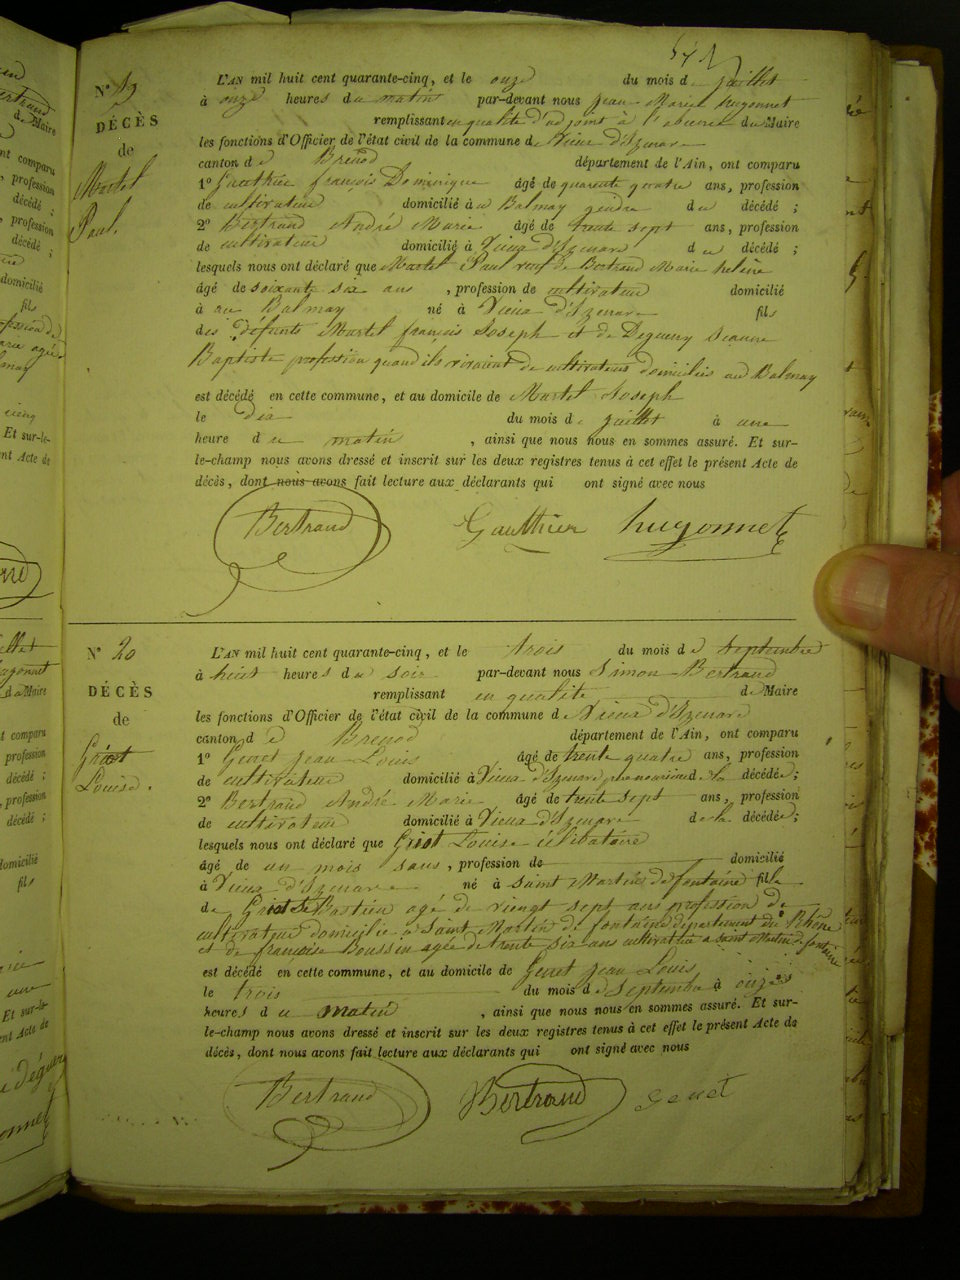 N° 19
DÉCÈS
de
Martel
Paul.
L'AN mil huit cent quarante-cinq, et le onze du mois de juillet
à onze heures du matin par-devant nous jean Marie hugonnet
remplissant en qualité d'adjoint à l'absence du Maire
les fonctions d'Officier de l'état civil de la commune de Vieux d'Izenave
canton de Brenod département de l'Ain, ont comparu
1° Gauthier françois Dominique âgé de quarente quatre ans, profession
de cultivateur domicilié au Balmay gendre du décédé ;
2° Bertrand André Marie âgé de trente sept ans, profession
de cultivateur domicilié à Vieux d'Izenave du décédé ;
lesquels nous ont déclaré que Martel Paul veuf de Bertrand Marie helène
âgé de soixante six ans , profession de cultivateur domicilié
à au Balmay né à Vieux d'Izenave fils
des défunts Martel françois Joseph et de Jeanne
Baptiste profession quand ils vivaient de cultivateurs domiciliés au Balmay
est décédé en cette commune, et au domicile de Martel Joseph
le dix du mois de juillet à une
heure du matin , ainsi que nous nous en sommes assuré. Et sur-
le-champ nous avons dressé et inscrit sur les deux registres tenus à cet effet le présent Acte de
décès, dont nous avons fait lecture aux déclarants qui ont signé avec nous
Bertrand Gauthier hugonnet
N° 20
DÉCÈS
de
Griot
Louise.
L'AN mil huit cent quarante-cinq, et le trois du mois de septembre
à huit heures du soir par-devant nous Simon Bertrand
remplissant en qualité de Maire
les fonctions d'Officier de l'état civil de la commune de Vieux d'Izenave
canton de Brenod département de l'Ain, ont comparu
1° Genet jean Louis âgé de trente quatre ans, profession
de cultivateur domicilié à Vieux d'Izenave père nouricier de la décédée;
2° Bertrand André Marie âgé de trente sept ans, profession
de cultivateur domicilié à Vieux d'Izenave de la décédée;
lesquels nous ont déclaré que Griot Louise célibataire
âgé de un mois sans , profession de domicilié
à Vieux d'Izenave né à saint Martin de fontaine fille
de Griot Sébastien agé de vingt sept ans profession de
cultivateur domicilié à Saint Martin de fontaine département du Rhône
et de françoise Soussin agée de trente six ans cultivatrice a saint Martin de fontaine
est décédé en cette commune, et au domicile de Genet jean Louis
le trois du mois de septembre à onze
heures du matin , ainsi que nous nous en sommes assuré. Et sur-
le-champ nous avons dressé et inscrit sur les deux registres tenus à cet effet le présent Acte de
décès, dont nous avons fait lecture aux déclarants qui ont signé avec nous
Bertrand Bertrand Genet